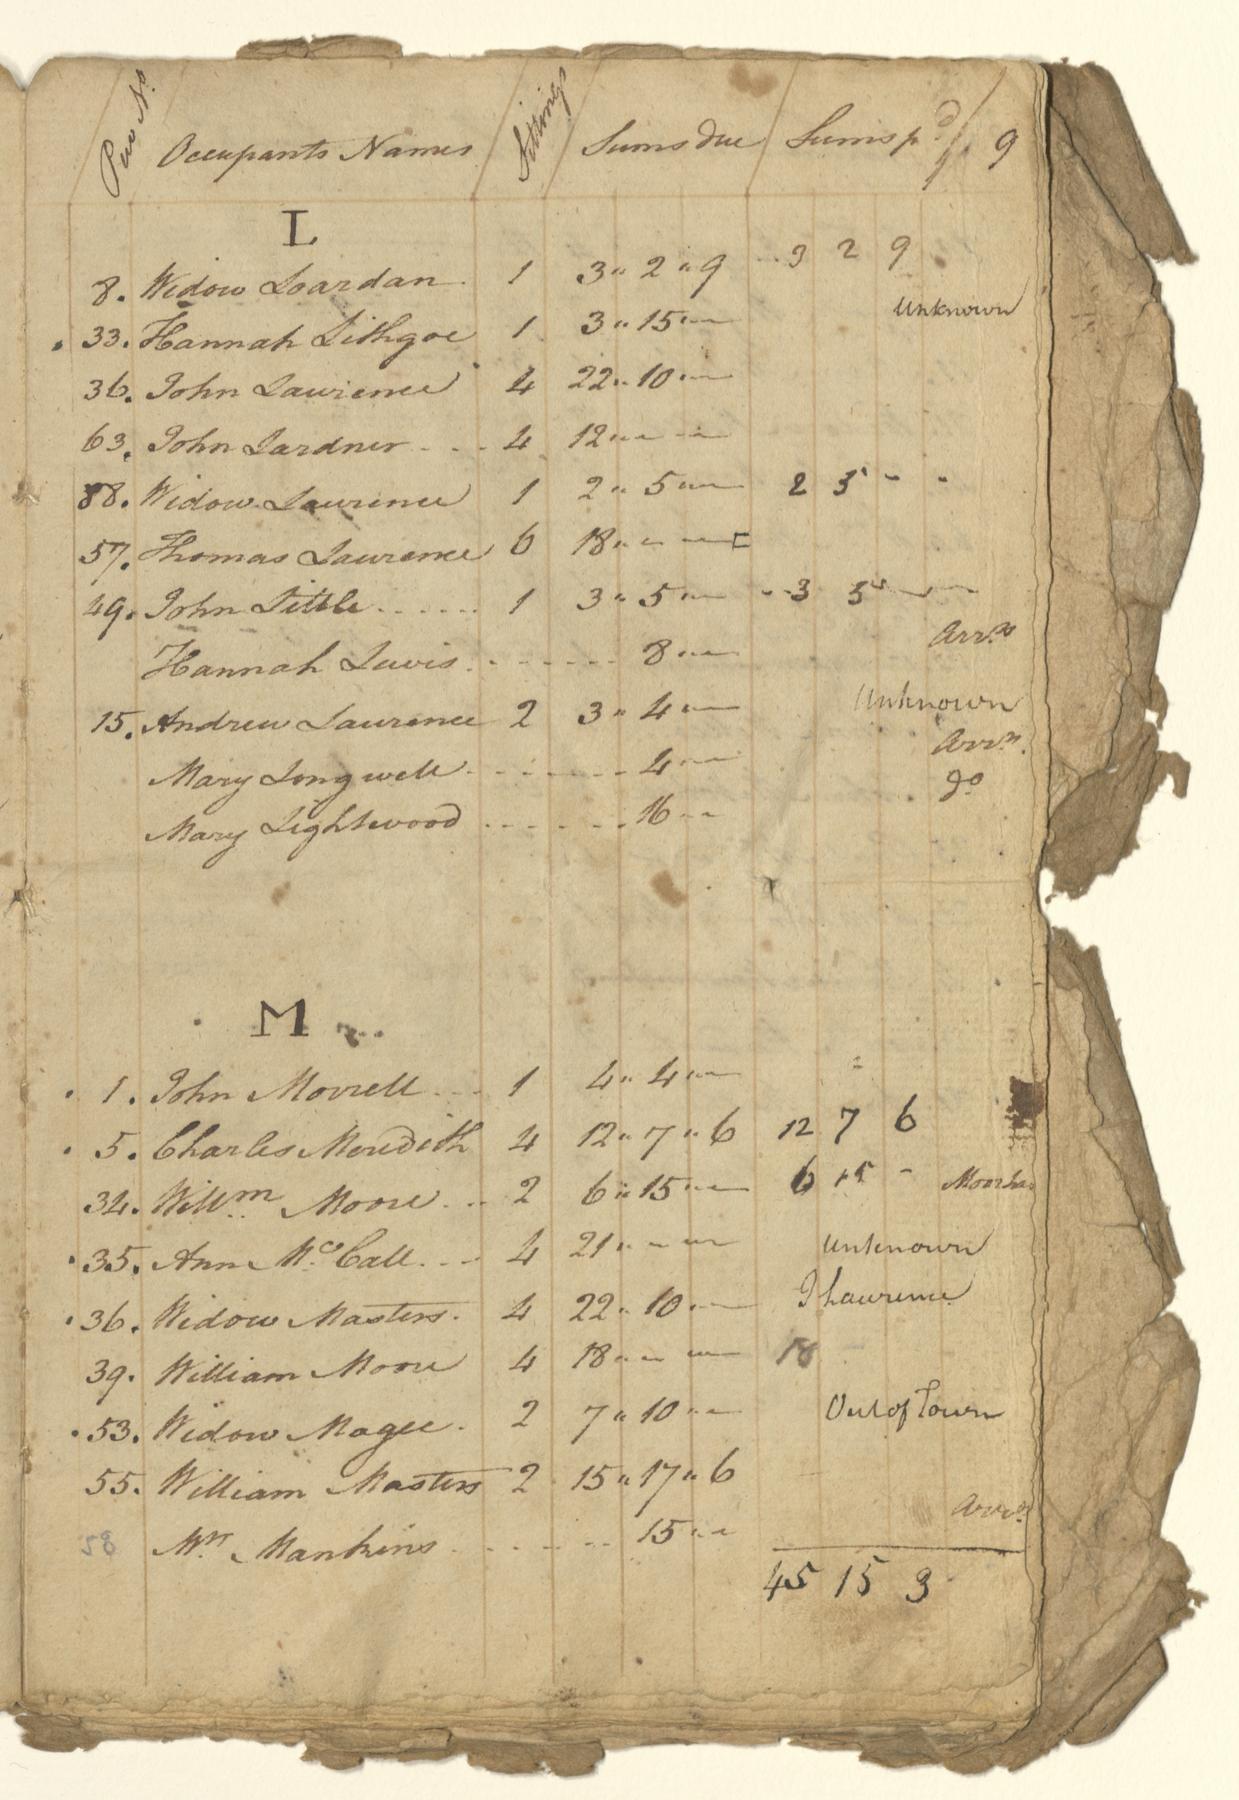 Pew No. Occupants Names Sittings Sums due Sums pd 9
L
8. Widow Loardan 1 3 " 2 " 9 3 2 9
33. Hannah Lithgoe 1 3 " 15 " — Unknown
36. John Lawrence 4 22 " 10 " —
63. John Lardner 4 12 " — " —
88. Widow Lawrence 1 2 " 5 " — 2 5 - -
57. Thomas Lawrence 6 18 " — " —
49. John Little 1 3 " 5 " — 3 5 " —
Hannah Lewis 8 " — Arrs
15. Andrew Lawrence 2 3 " 4 " — Unknown
Mary Longwell 4 " — Arrs.
Mary Lightwood 16 " — Do
M
1. John Morrell 1 4 " 4 " —
5. Charles Meredith 4 12 " 7 " 6 12 7 6
34. Willm Moore 2 6 " 15 " — 6 15 -
35. Ann McCall 4 21 " — " — Unknown
36. Widow Masters 4 22 " 10 " — J Lawrence
39. William Moore 4 18 " — " — 18
53. Widow Magee 2 7 " 10 " — Out of Town
55. William Masters 2 15 " 17 " 6
58 Mr. Mankins 15 " — Arrs
45 15 3